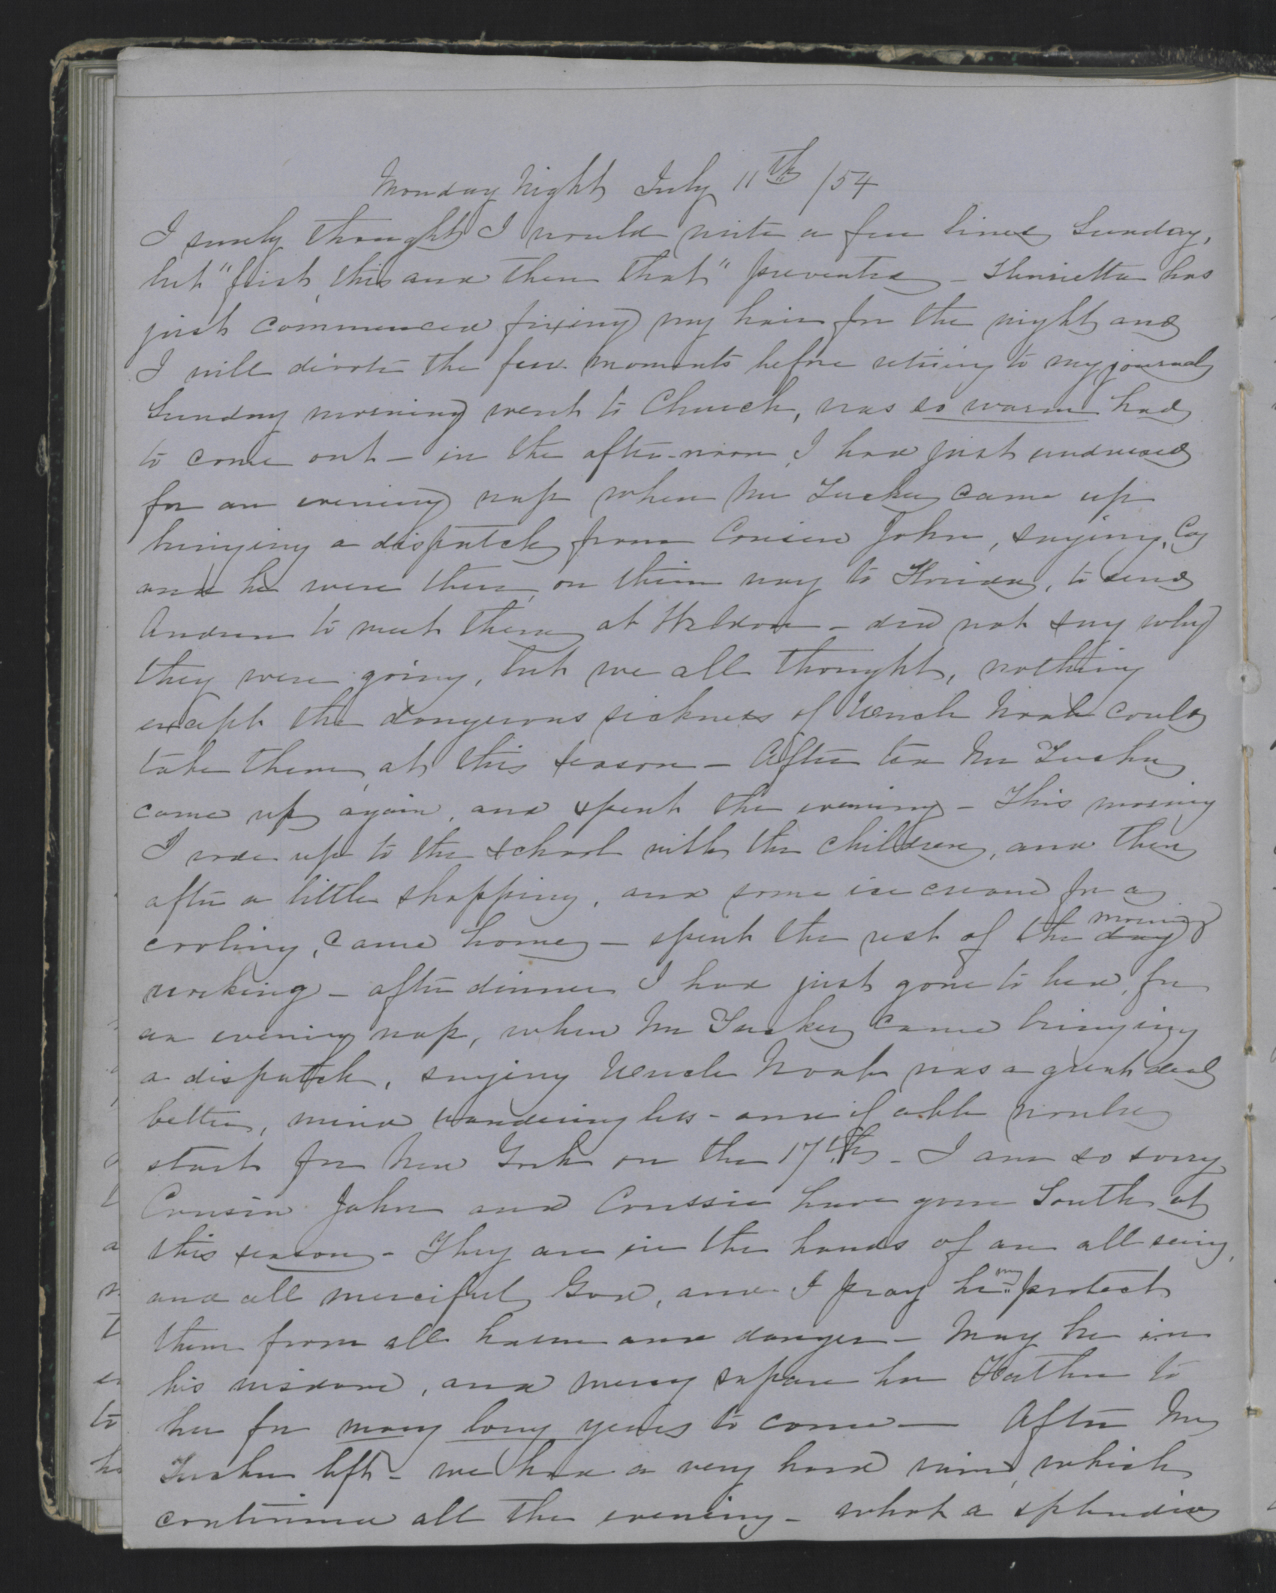 Monday Night July 11th /54
I surely thought I would write a few lines Sunday,
but "first, this and then that" prevented - Henrietta has
just commenced fixing my hair for the night and
I will devote the few moments before retiring to my journal
Sunday morning went to Church, was so warm had
to come out - in the after-noon, I had just undressed
for an evening nap when Mr Tucker came up
bringing a dispatch from Cousin John, saying, Coz
and he were there, on their way to Florida, to send
Andrew to meet them at Weldon - did not say why
they were going, but we all thought, nothing
except the dangerous sickness of Uncle Noah could
take them, at this season - After tea Mr Tucker
came up again, and spent the evening - This morning
I rode up to the school with the children, and then
after a little shopping, and some ice cream for a
cooling, came home - spent the rest of the day morning
working - after dinner I had just gone to bed, for
an evening nap, when Mr Tucker came bringing
a dispatch, saying Uncle Noah was a great deal
better, mind wandering less - and if able would
start for New York on the 17th - I am so sorry
Cousin John and Coussie have gone South at
this season - They are in the hands of an all seing,
and all merciful God, and I pray him may protect
them from all harm and danger - May he in
his wisdom, and mercy sapare her Father to
her for many long years to come - After Mr
Tucker left - we had a very hard rain, which
continued all the evening - what a splendid